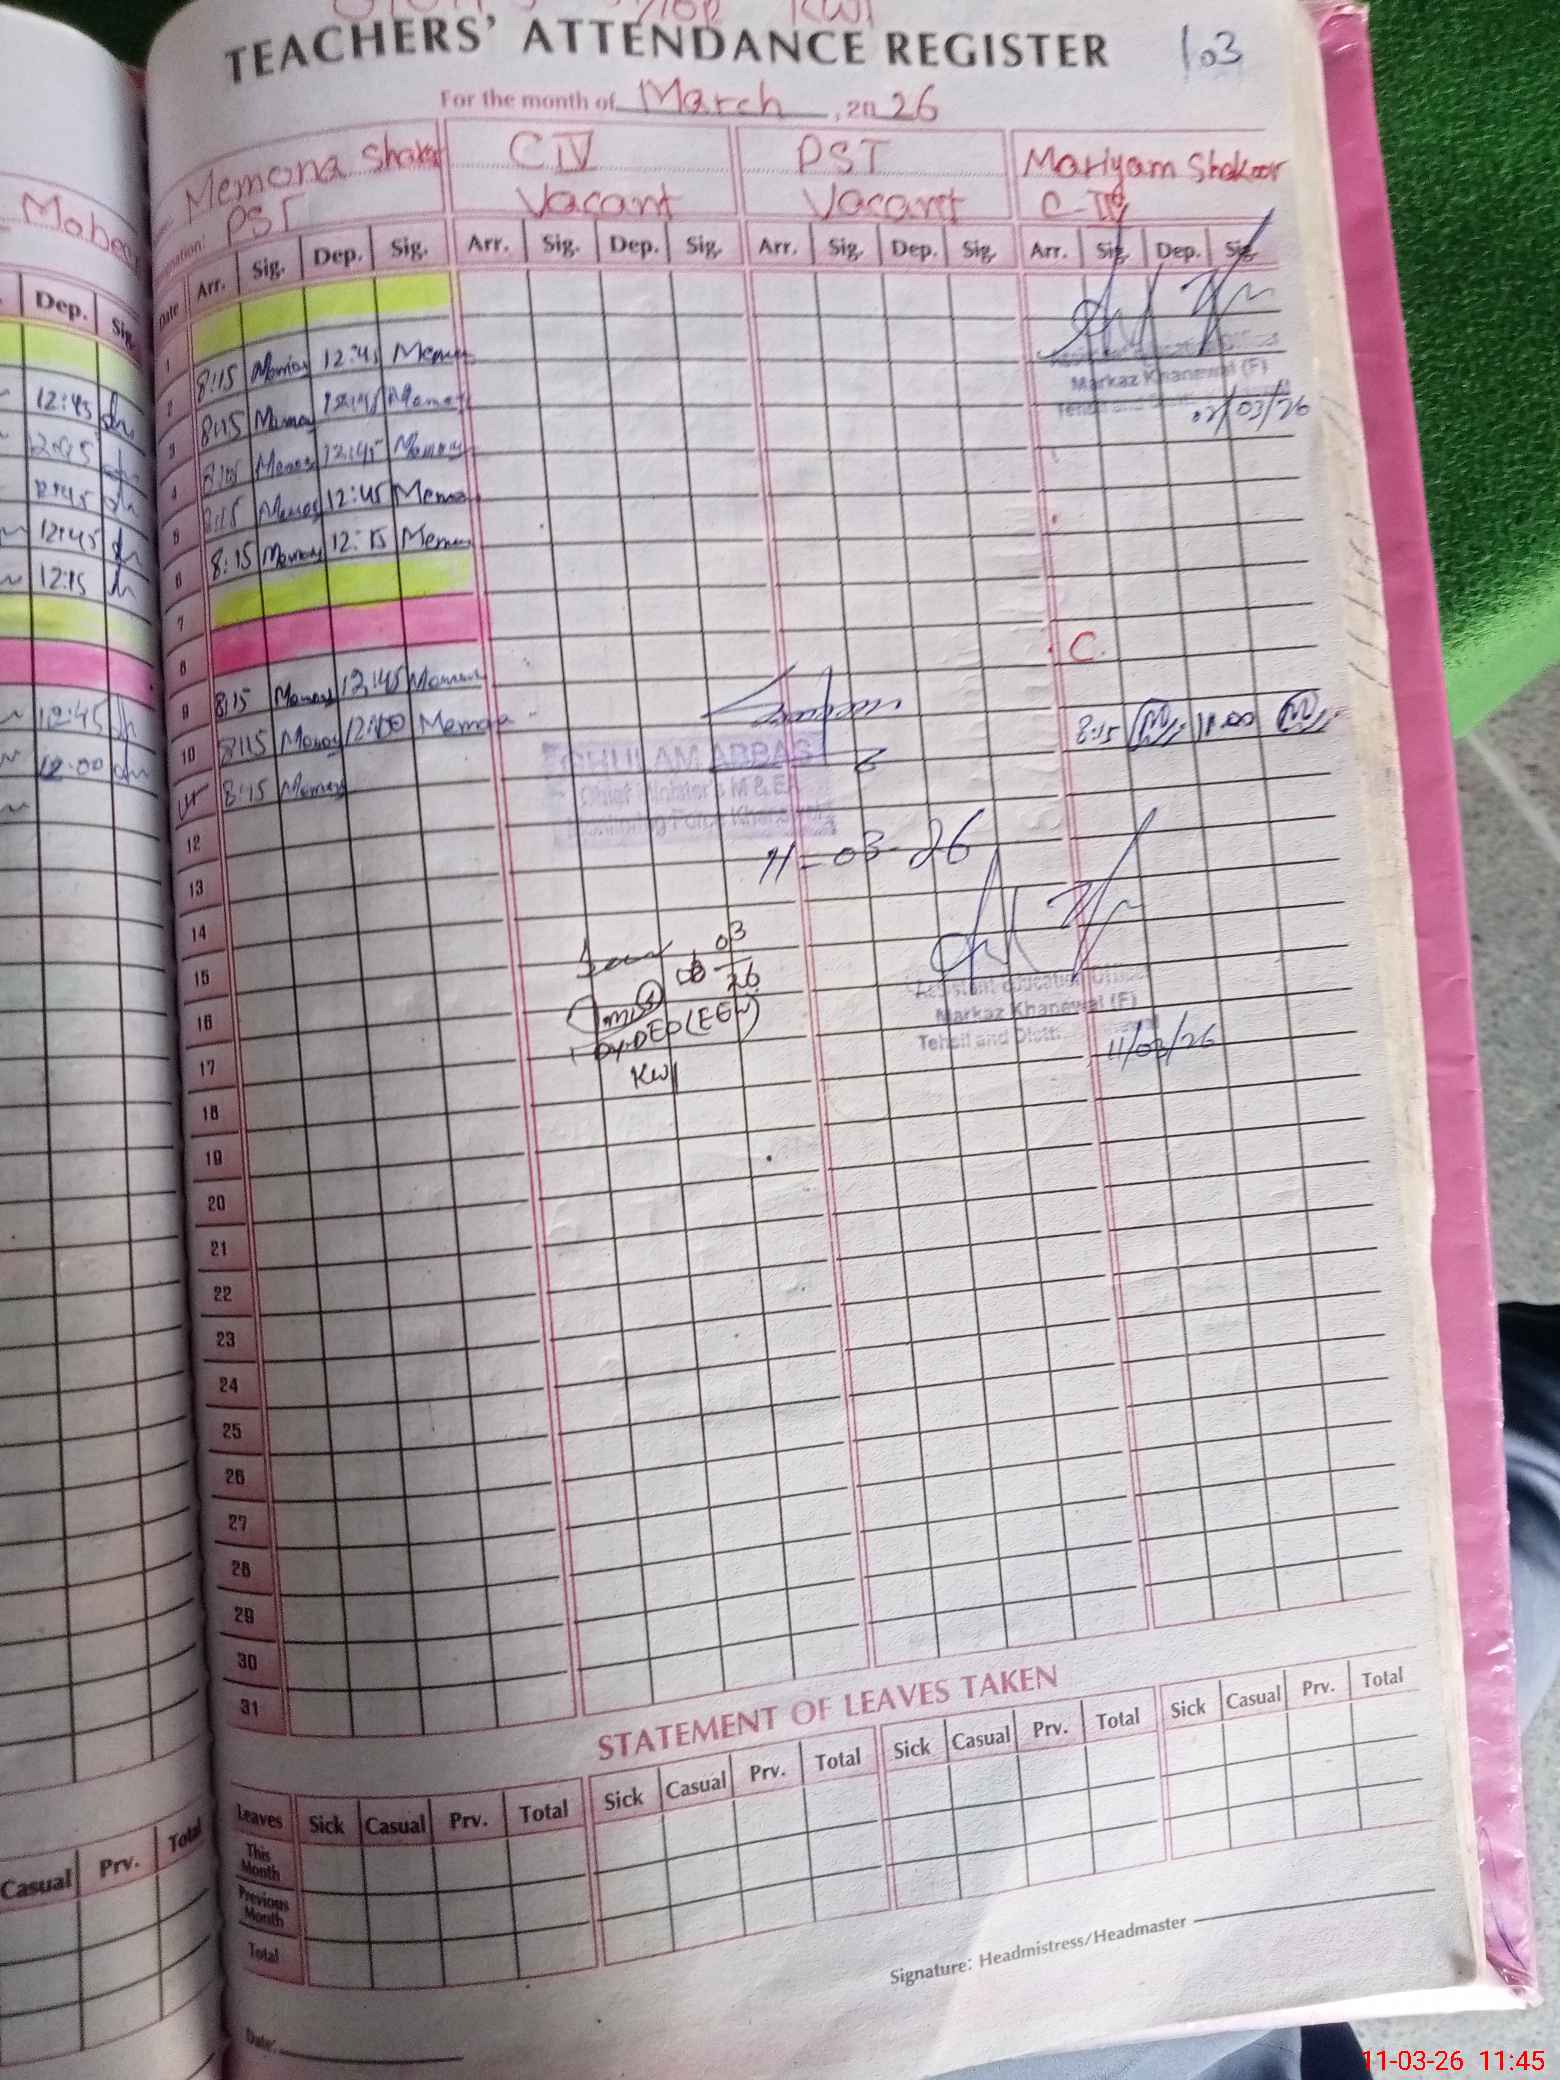 TEACHERS' ATTENDANCE REGISTER 103
For the month of March, 2026
Memona Shakoor
PST
CIV
Vacant
PST
Vacant
Mariyam Shakoor
C-IV
Mahee
Dep. Sig.
Date Arr. Sig. Dep. Sig. Arr. Sig. Dep. Sig. Arr. Sig. Dep. Sig. Arr. Sig. Dep. Sig.
1
8:15 12:45
2
8:15 12:45
3
8:15 12:45
4
8:15 12:45
5
8:15 12:15
6
7
8
8:15 12:45
9
8:15 12:00
10
8:15
12
13
14
15
16
17
18
19
20
21
22
23
24
25
26
27
28
29
30
31
12:45
12:45
12:45
12:45
12:15
12:45
12:00
Markaz Khanewal (F)
02/03/26
C
8:15 11:00
GHULAM ABBAS
Chief Minister's M & EA
Monitoring Force Khanewal
11-03-26
03
26
DY-DEO (EE-W)
KWl
Assistant Education Officer
Markaz Khanewal (F)
Tehsil and Distt:
11/03/26
STATEMENT OF LEAVES TAKEN
Leaves Sick Casual Prv. Total Sick Casual Prv. Total Sick Casual Prv. Total Sick Casual Prv. Total
This Month
Previous Month
Total
Casual Prv. Total
Signature: Headmistress/Headmaster
Date:
11-03-26 11:45